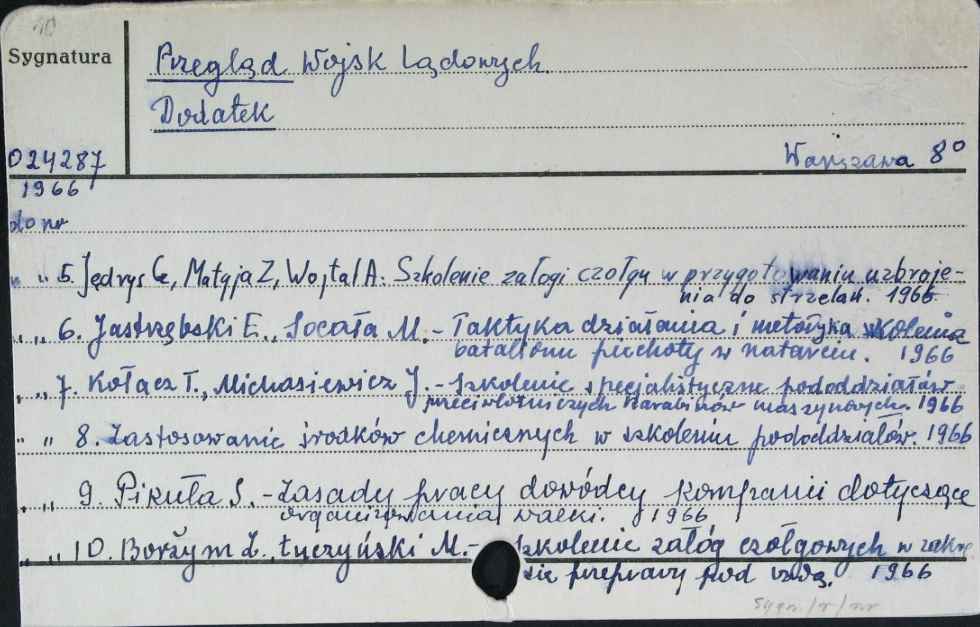 10
Sygnatura
Przegląd Wojsk Lądowych.
Dodatek
024287
Warszawa 8°
1966
do nr
" " 5. Jędrys C., Matyja Z, Wojtal A. Szkolenie załogi czołgu w przygotowaniu uzbroje-
nia do strzelań. 1966
" " 6. Jastrzębski E., Socała M. - Taktyka działania i metodyka szkolenia
batalionu piechoty w natarciu. 1966
" " 7. Kołacz T., Michasiewicz J. - Szkolenie specjalistyczne pododdziałów
przeciwlotniczych karabinów maszynowych. 1966
" " 8. Zastosowanie środków chemicznych w szkoleniu pododdziałów. 1966
" " 9. Pikuła S. - Zasady pracy dowódcy kompanii dotyczące
organizowania walki. 1966
" " 10. Borzym Z., Łuczyński M. - Szkolenie załóg czołgowych w zakre
sie przeprawy pod wodą. 1966
Sygn./r/nr